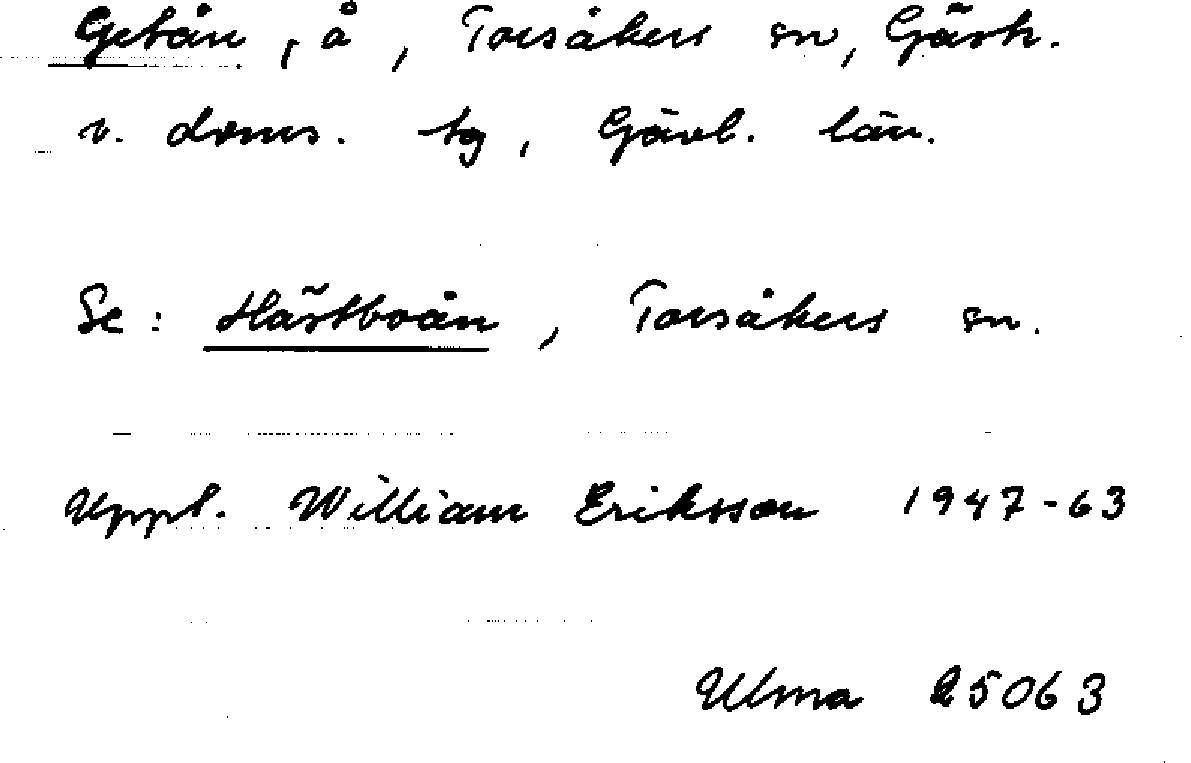 Getån, å, Torsåkers sn, Gästr.
v. doms. tg, Gävl. län.
Se: Hästboån, Torsåkers sn.
Uppt. William Eriksson 1947-63
Ulma 25063